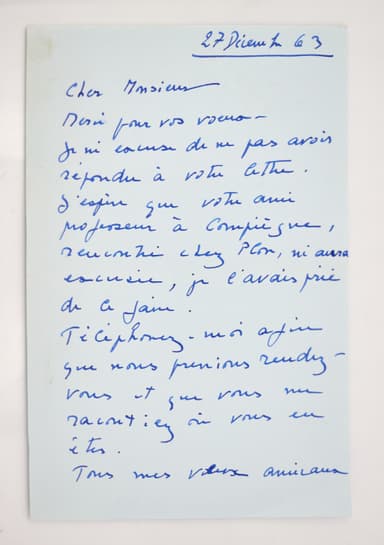 27 Décembre 63
Cher Monsieur
Merci pour vos voeux -
Je m'excuse de ne pas avoir
répondu à votre lettre.
J'espère que votre ami
professeur à Compiègne,
rencontré chez Plon, m'aura
excusée, je l'avais prié
de le faire.
Téléphonez-moi afin
que nous prenions rendez-
vous et que vous me
racontiez où vous en
êtes.
Tous mes voeux amicaux